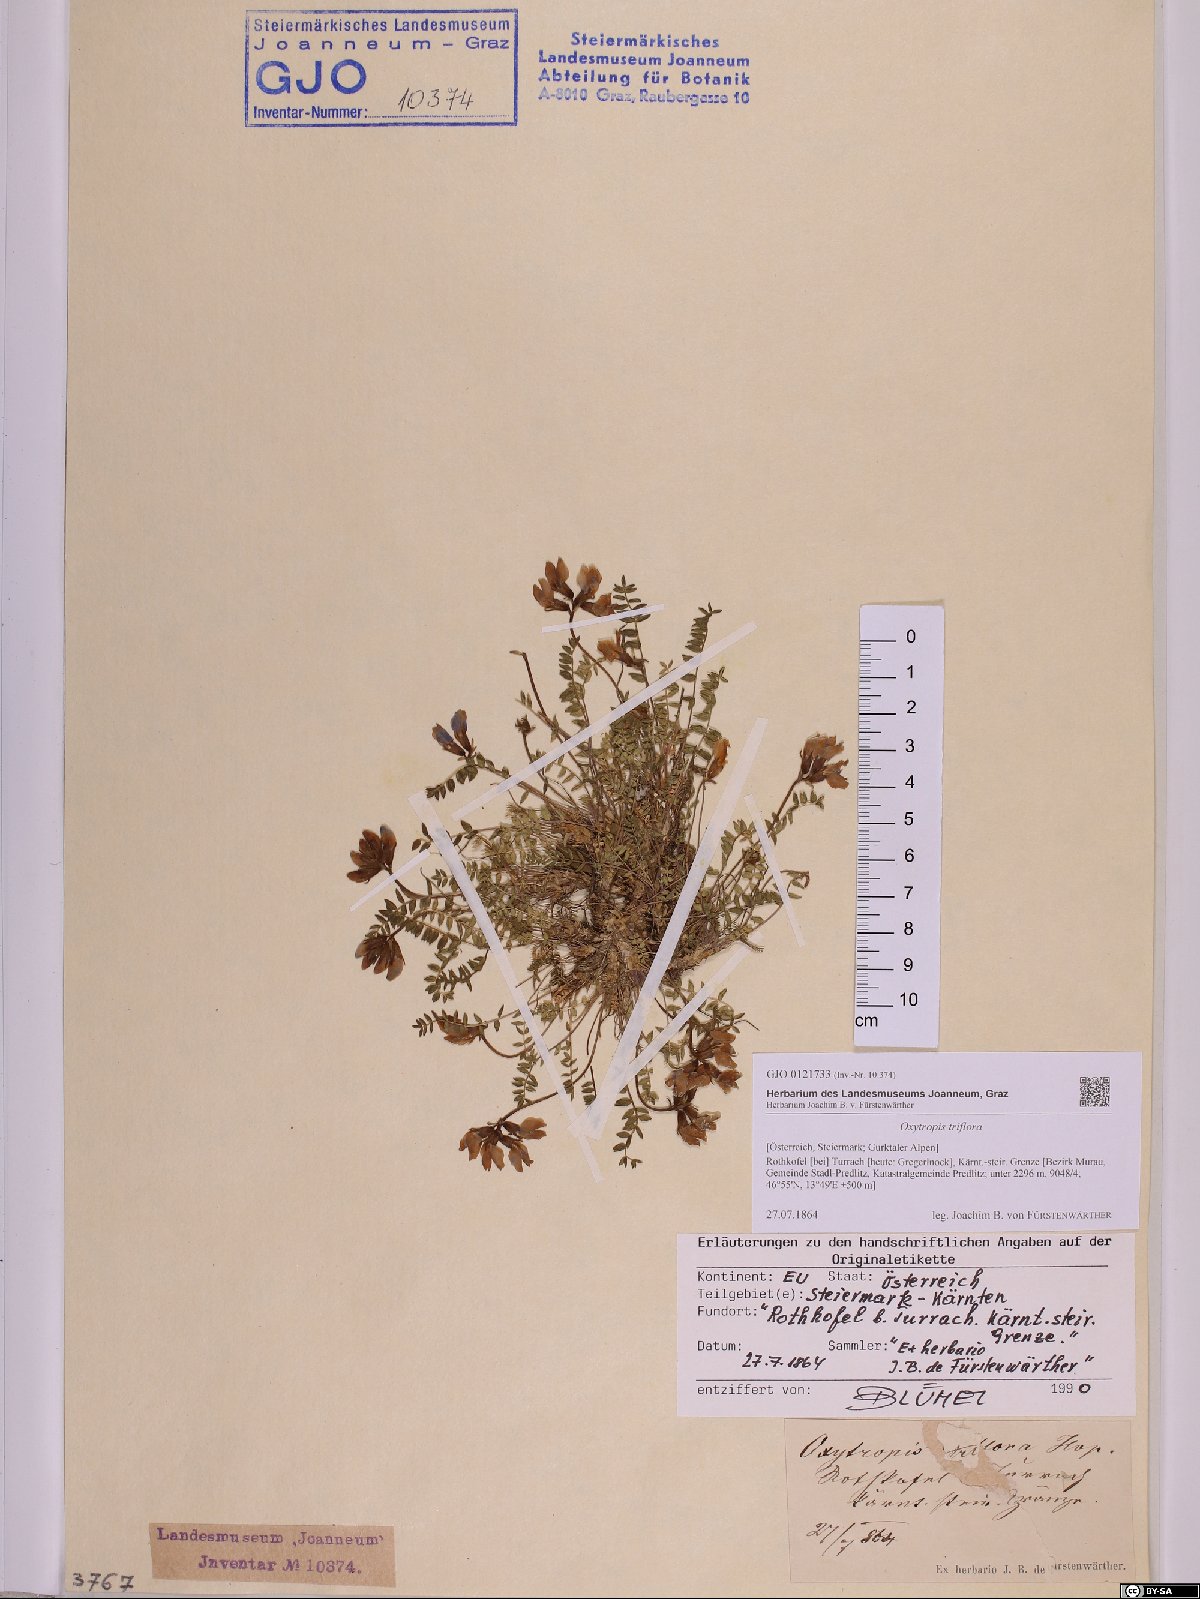 Steiermärkisches Landesmuseum
Joanneum – Graz
GJO
Inventar-Nummer: 10374
Steiermärkisches
Landesmuseum Joanneum
Abteilung für Botanik
A-8010 Graz, Raubergasse 10
0
1
2
3
4
5
6
7
8
9
10
cm
GJO 0121733 (Inv.-Nr. 10.374)
Herbarium des Landesmuseums Joanneum, Graz
Herbarium Joachim B. v. Fürstenwärther
Oxytropis triflora
[Österreich, Steiermark; Gurktaler Alpen]
Rothkofel [bei] Turrach [heute: Gregerlnock], Kärnt.-steir. Grenze [Bezirk Murau,
Gemeinde Stadl-Predlitz, Katastralgemeinde Predlitz; unter 2296 m. 9048/4,
46°55'N, 13°49'E ±500 m]
27.07.1864 leg. Joachim B. von FÜRSTENWÄRTHER
Erläuterungen zu den handschriftlichen Angaben auf der
Originaletikette
Kontinent: EU Staat: Österreich
Teilgebiet(e): Steiermark - Kärnten
Fundort: "Rothkofel b. Turrach. Kärnt.steir.
Grenze."
Datum: 27.7.1864 Sammler: "Ex herbario
J.B. de Fürstenwärther"
entziffert von: BLÜMEL 1990
Oxytropis triflora Hop.
Rothkofel Turrach
Kärnt. steir. Gränze.
27/7 864
Ex herbario J. B. de Fürstenwärther.
Landesmuseum „Joanneum"
Inventar № 10374.
3767
CC BY-SA